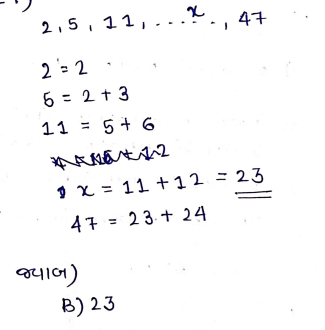 2, 5, 11, ...x..., 47
2 = 2
5 = 2 + 3
11 = 5 + 6
x = 11 + 12 = 23
47 = 23 + 24
જવાબ)
B) 23